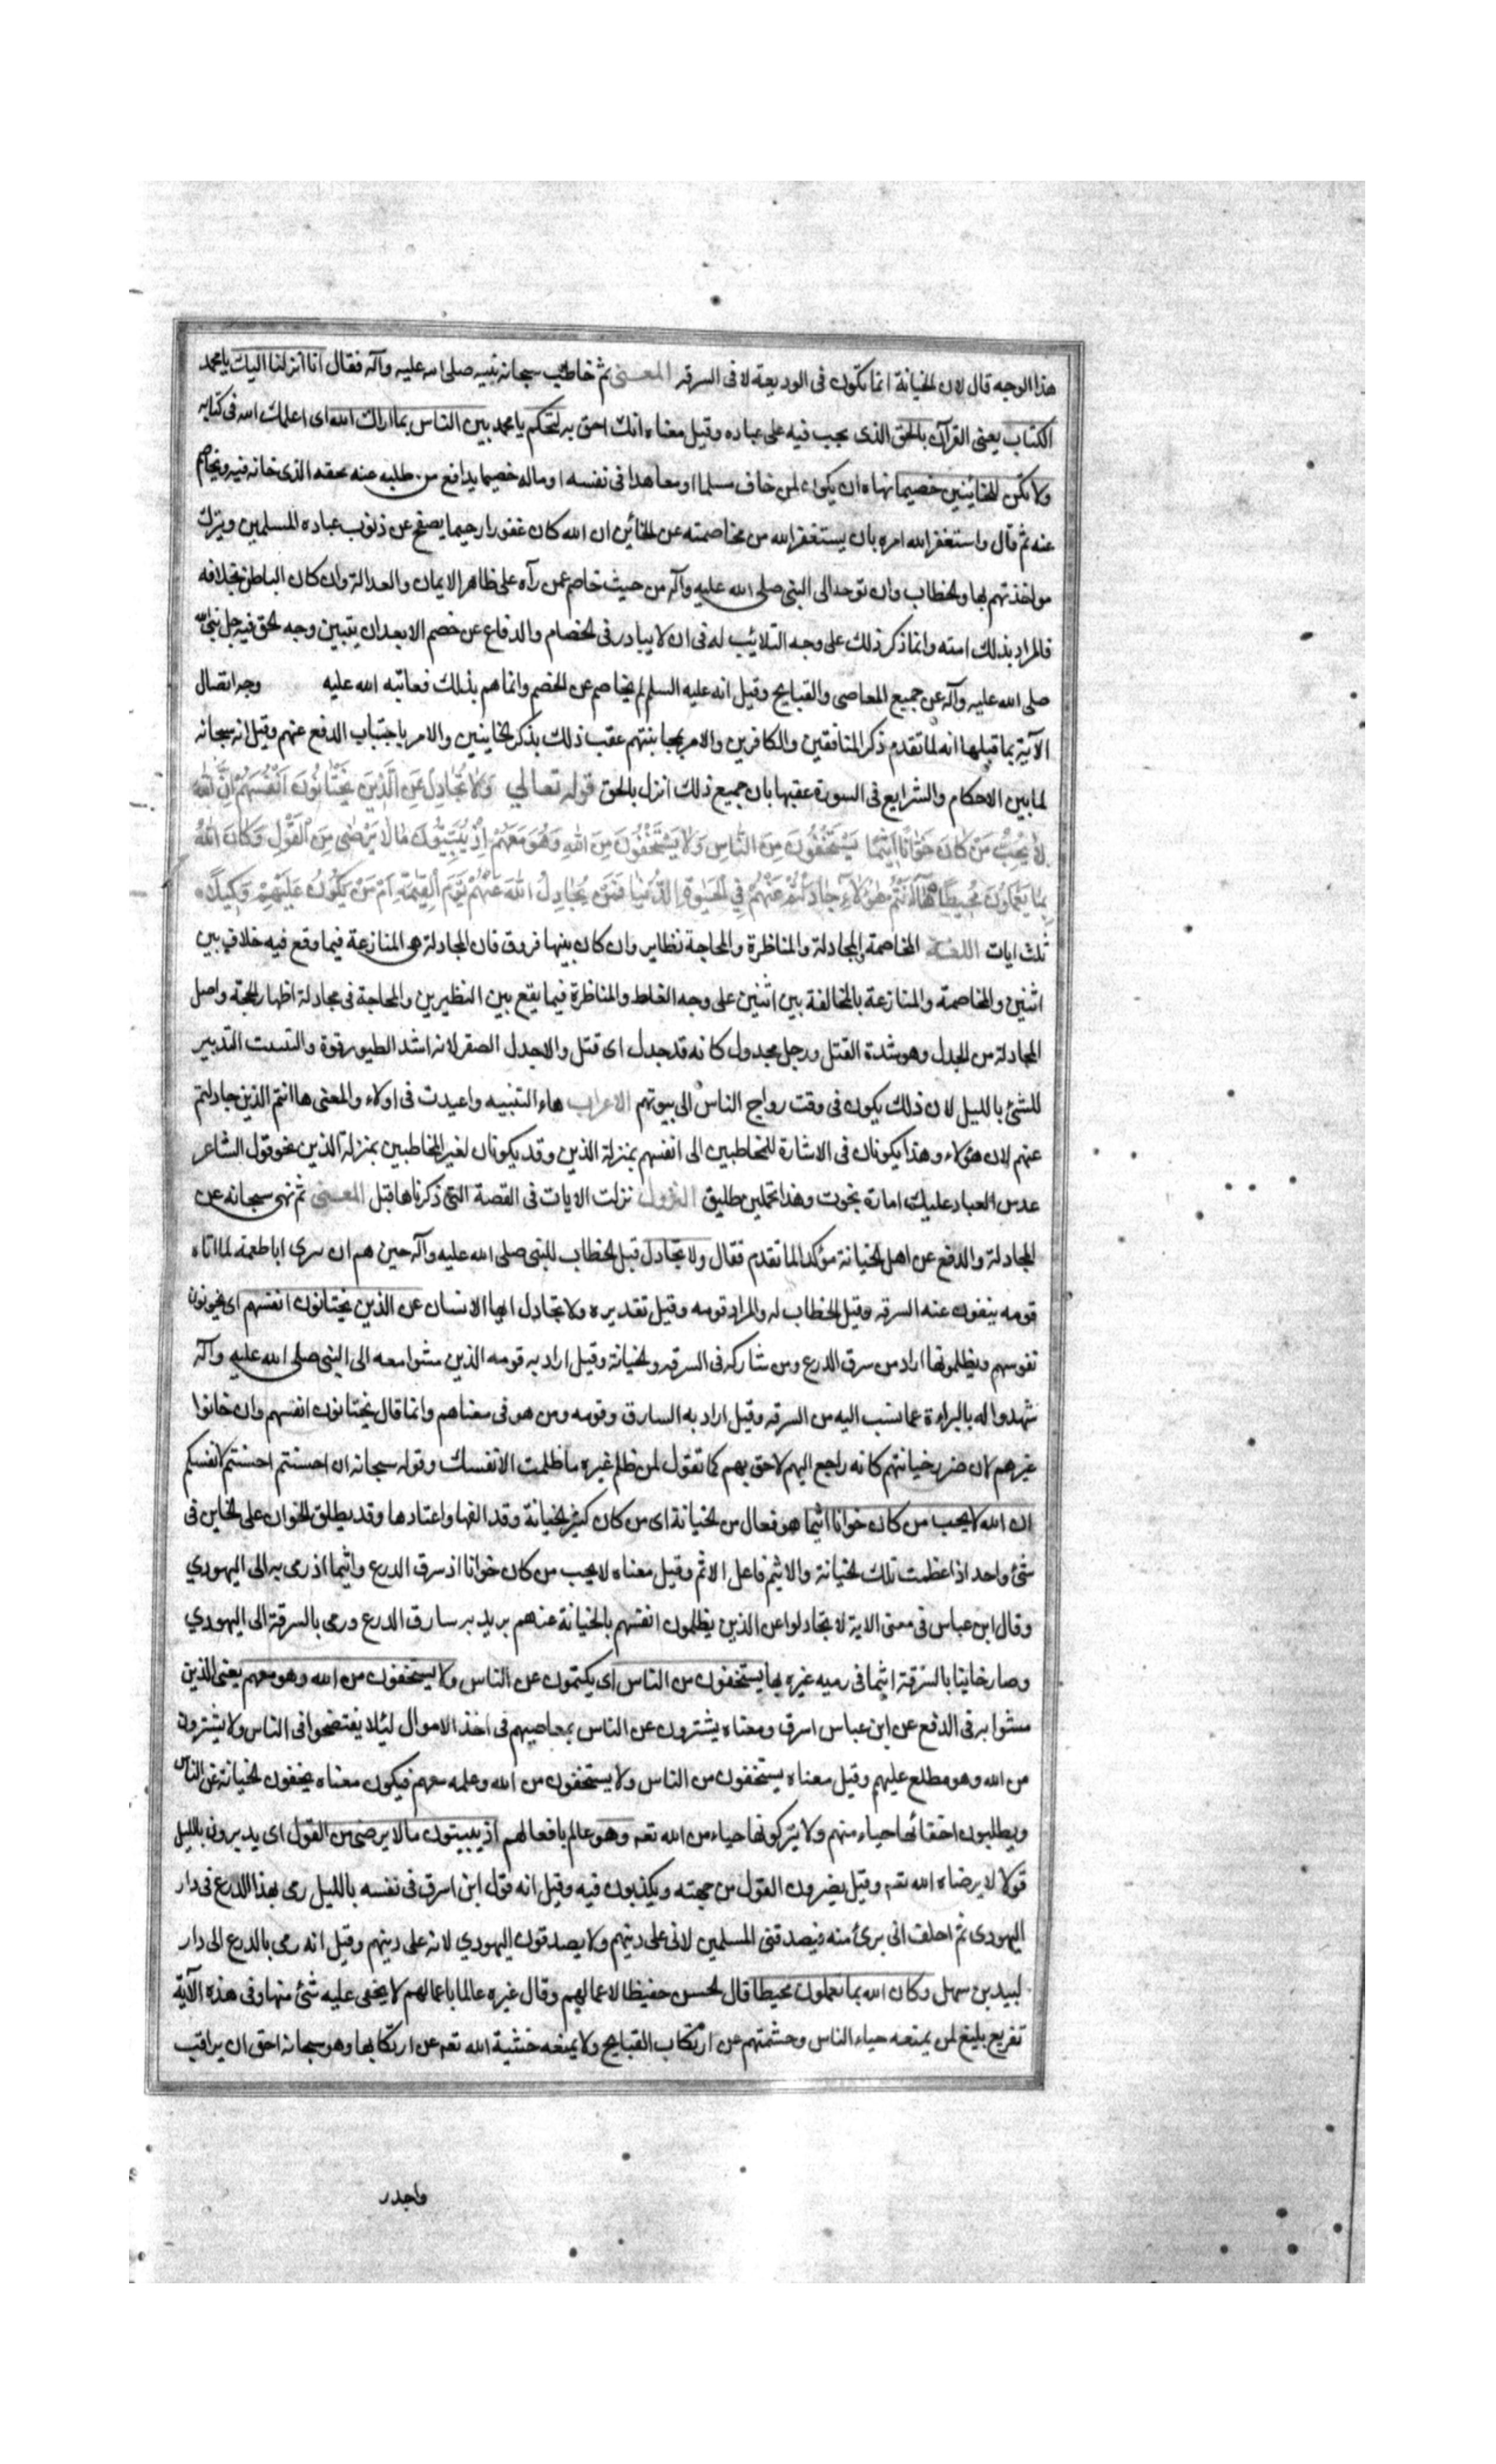 هذا الوجه قال لان الخيانة انما تكون فى الوديعة لا فى السرقه المعنى ثم خاطب سبحانه نبيه صلى الله عليه وآله فقال انا انزلنا اليك يا محمد
الكتاب يعنى القرآن بالحق الذى يجب فيه على عباده وقيل معناه انك احق به لتحكم يا محمد بين الناس بما اراك الله اى اعلمك الله فى كتابه
ولا تكن للخائنين خصيما نهاه ان يكون لمن خاف مسلما او معاهدا فى نفسه او ماله خصيما يدافع من طلبه عنه بحقه الذى خانه فيه ويخاصم
عنه ثم قال واستغفر الله امره بان يستغفر الله من مخاصمته عن الخائن ان الله كان غفورا رحيما يصفح عن ذنوب عباده المسلمين ويترك
مواخذتهم بها والخطاب وان توجه الى النبى صلى الله عليه وآله من حيث خاصم عمن رآه على ظاهر الايمان والعدالة وان كان الباطن بخلافه
فالمراد بذلك امته وانما ذكر ذلك على وجه التاديب له فى ان لا يبادر فى الخصام والدفاع عن خصم الا بعد ان يتبين وجه الحق فيه جل نبى الله
صلى الله عليه وآله عن جميع المعاصى والقبايح وقيل انه عليه السلم لم يخاصم عن الخصم وانما هم بذلك فعاتبه الله عليه وجه اتصال
الآية بما قبلها انه لما تقدم ذكر المنافقين والكافرين والامر بمجانبتهم عقب ذلك بذكر الخاينين والامر باجتناب الدفع عنهم وقيل انه سبحانه
لما بين الاحكام والشرايع فى السورة عقبها بان جميع ذلك انزل بالحق قوله تعالى وَلَا تُجَادِلْ عَنِ الَّذِينَ يَخْتَانُونَ اَنْفُسَهُمْ اِنَّ اللهَ
لَا يُحِبُّ مَنْ كَانَ خَوَّانًا اَثِيمًا يَسْتَخْفُونَ مِنَ النَّاسِ وَلَا يَسْتَخْفُونَ مِنَ اللهِ وَهُوَ مَعَهُمْ اِذْ يُبَيِّتُونَ مَا لَا يَرْضٰى مِنَ الْقَوْلِ وَكَانَ اللهُ
بِمَا يَعْمَلُونَ مُحِيطًا هَا اَنْتُمْ هٰؤُلَاءِ جَادَلْتُمْ عَنْهُمْ فِى الْحَيٰوةِ الدُّنْيَا فَمَنْ يُجَادِلُ اللهَ عَنْهُمْ يَوْمَ الْقِيٰمَةِ اَمْ مَنْ يَكُونُ عَلَيْهِمْ وَكِيلًا
ثلث ايات اللغة المخاصمة والمجادلة والمناظرة والمحاجة نظاير وان كان بينها فروق فان المجادلة هى المنازعة فيما وقع فيه خلاف بين
اثنين والمخاصمة والمنازعة بالمخالفة بين اثنين على وجه الغلط والمناظرة فيما يقع بين النظيرين والمحاجة فى مجادلة اظهار الحجة واصل
المجادلة من الجدل وهو شدة الفتل ورجل مجدول كانه قد جدل اى فتل والاجدل الصقر لانه اشد الطيور قوة والتبييت التدبير
للشئ بالليل لان ذلك يكون فى وقت رواح الناس الى بيوتهم الاعراب هاء التنبيه واعيدت فى اولاء والمعنى ها انتم الذين جادلتم
عنهم لان هؤلاء وهذا يكونان فى الاشارة للمخاطبين الى انفسهم بمنزلة الذين وقد يكونان لغير المخاطبين بمنزلة الذين نحو قول الشاعر
عدس العباد عليك امارة نجوت وهذا تحملين طليق النزول نزلت الايات فى القصة التى ذكرناها قبل المعنى ثم نهى سبحانه عن
المجادلة والدفع عن اهل الخيانة مؤكدا لما تقدم فقال ولا تجادل قيل الخطاب للنبى صلى الله عليه وآله حين هم ان يبرى ابا طعمة لما اتاه
قومه ينفون عنه السرقه وقيل الخطاب له والمراد قومه وقيل تقديره ولا تجادل ايها الانسان عن الذين يختانون انفسهم اى يخونون
نفوسهم ويظلمونها اراد من سرق الدرع ومن شاركه فى السرقه والخيانة وقيل اراد به قومه الذين مشوا معه الى النبى صلى الله عليه وآله
شهدوا له بالبراءة عما نسب اليه من السرقه وقيل اراد به السارق وقومه ومن هو فى معناهم وانما قال يختانون انفسهم وان خانوا
غيرهم لان ضرر خيانتهم كانه راجع اليهم لاحق بهم كما تقول لمن ظلم غيره ما ظلمت الا نفسك وقوله سبحانه ان احسنتم احسنتم لانفسكم
ان الله لا يحب من كان خوانا اثيما هو فعال من الخيانة اى من كان كثير الخيانة وقد الفها واعتادها وقد يطلق الخوان على الخاين فى
شئ واحد اذا عظمت تلك الخيانة والاثيم فاعل الاثم وقيل معناه لا يحب من كان خوانا اذ سرق الدرع واثيما اذ رمى به الى اليهودي
وقال ابن عباس فى معنى الاية لا تجادلوا عن الذين يظلمون انفسهم بالخيانة عندهم يريد به سارق الدرع ورمى بالسرقة الى اليهودي
وصار خاينا بالسرقة اثيما فى رميه غيره بها يستخفون من الناس اى يكتمون عن الناس ولا يستخفون من الله وهو معهم يعنى الذين
مشوا به فى الدفع عن ابن عباس اسرق ومعناه يشترون عن الناس بمعاصيهم فى اخذ الاموال لئلا يفتضحوا فى الناس ولا يشترون
من الله وهو مطلع عليهم وقيل معناه يستخفون من الناس ولا يستخفون من الله وعلمه معهم فيكون معناه يخفون الخيانة عن الناس
ويطلبون اخفائها حياء منهم ولا يتركونها حياء من الله تعه وهو عالم بافعالهم اذ يبيتون ما لا يرضى من القول اى يدبرون بالليل
قولا لا يرضاه الله تعه وقيل يغيرون القول من جهته ويكذبون فيه وقيل انه قول ابن اسرق فى نفسه بالليل رمى بهذا الدرع فى دار
اليهودى ثم احلف انى برئ منه فيصدقنى المسلمين لانى على دينهم ولا يصدقون اليهودي لانه على دينهم وقيل انه رمى بالدرع الى دار
لبيد بن سهل وكان الله بما يعملون محيطا قال الحسن حفيظا لاعمالهم وقال غيره عالما باعمالهم لا يخفى عليه شئ منها وفى هذه الآية
تقريع بليغ لمن يمنعه حياء الناس وحشمتهم عن ارتكاب القبايح ولا يمنعه خشية الله تعه عن ارتكابها وهو سبحانه احق ان يراقب
واجدر